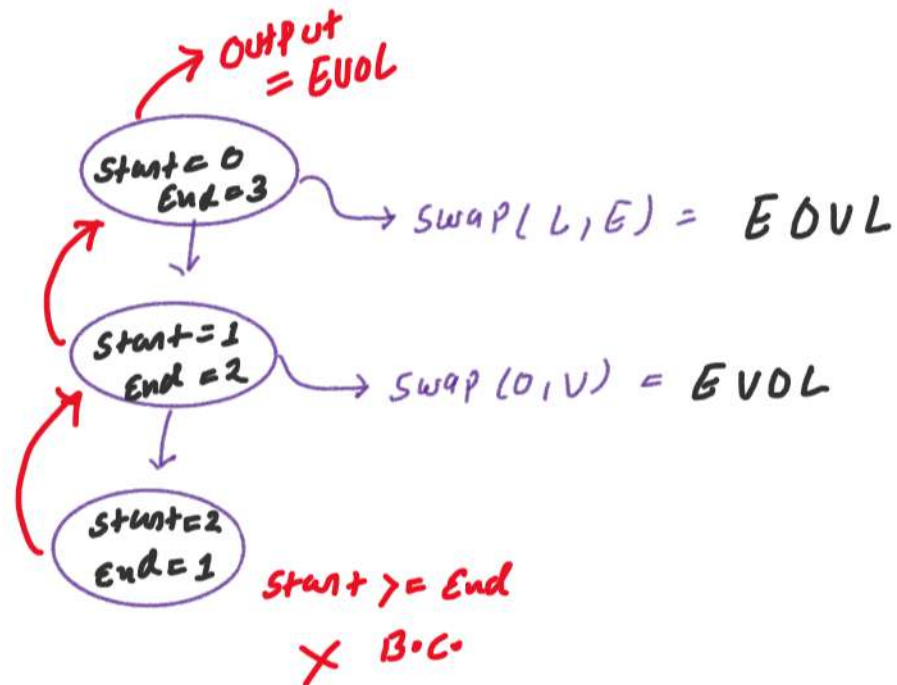 Output
= EVOL
Start = 0
End = 3
swap(L,E) = EOVL
Start = 1
End = 2
swap(O,V) = EVOL
Start = 2
End = 1
Start >= End
X B.C.